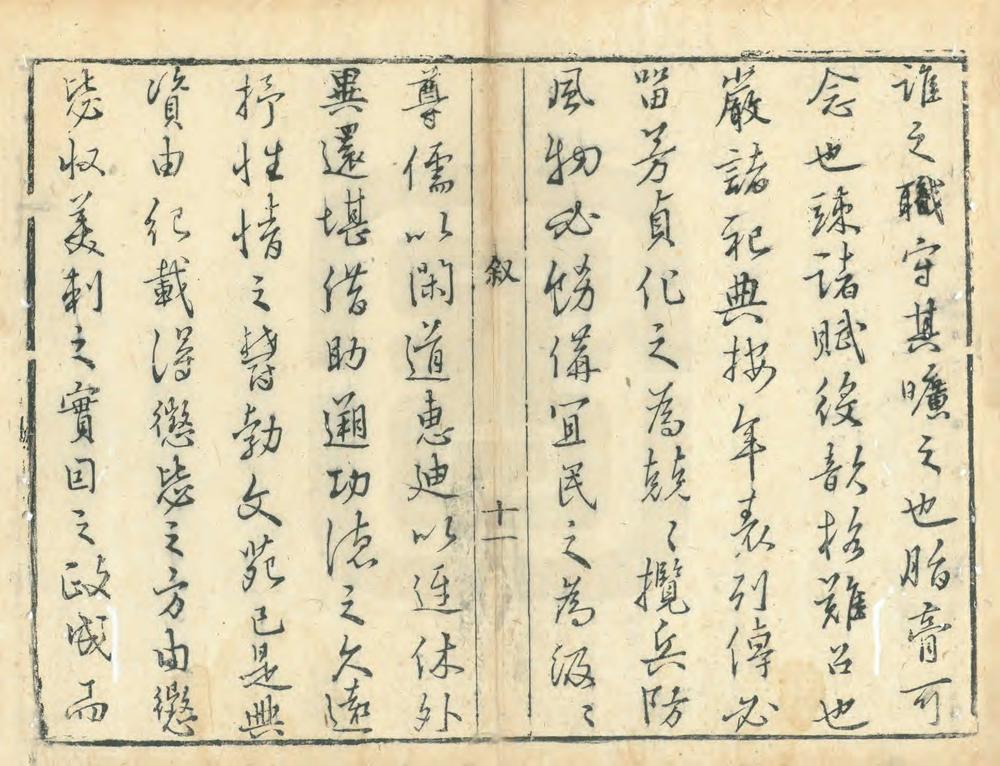 誰之職守其曠之也脂膏可
念也疎諸賦役歆格難召也
嚴諸祀典按年表列傳必
留芳貞化之為兢〻攬兵防
風物必備宜民之為汲〻
叙
十一
尊儒以闲道惠迪以迓休外
異還堪借助遡功德之久遠
抒性情之勃文苑已是典
資由紀載得懲毖之方由懲
毖収美刺之實回之政成而